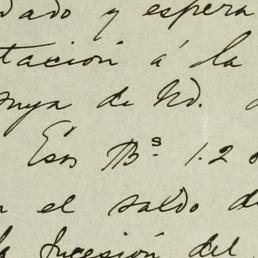 dado y espera
tación á la
suya de Ud.
Esos Bs. 1.2
el saldo de
la Sucesión del